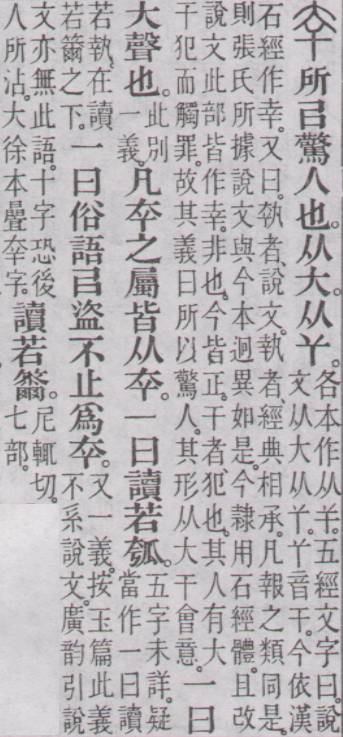 㚔所㠯驚人也。从大。从丫。
各本作从羊。五經文字曰。說
文从大从丫。丫音干。今依漢
石經作幸。又曰。執者、說文。執者、經典相承。凡報之類同是。
則張氏所據說文與今本迥異如是。今隷用石經體。且改
說文此部皆作幸。非也。今皆正。干者、犯也。其人有大
干犯而觸罪。故其義曰所㠯驚人。其形从大干會意。
一曰
大聲也。
此別
一義。
凡㚔之屬皆从㚔。一曰讀若瓠。
五字未詳。疑
當作一曰讀
若執、在讀
若籋之下。
一曰俗語㠯盜不止爲㚔。
又一義。按玉篇此義
不系說文。廣韵引說
文亦無此語。十字恐後
人所沾。大徐本疊㚔字。
讀若籋。
尼輒切。
七部。